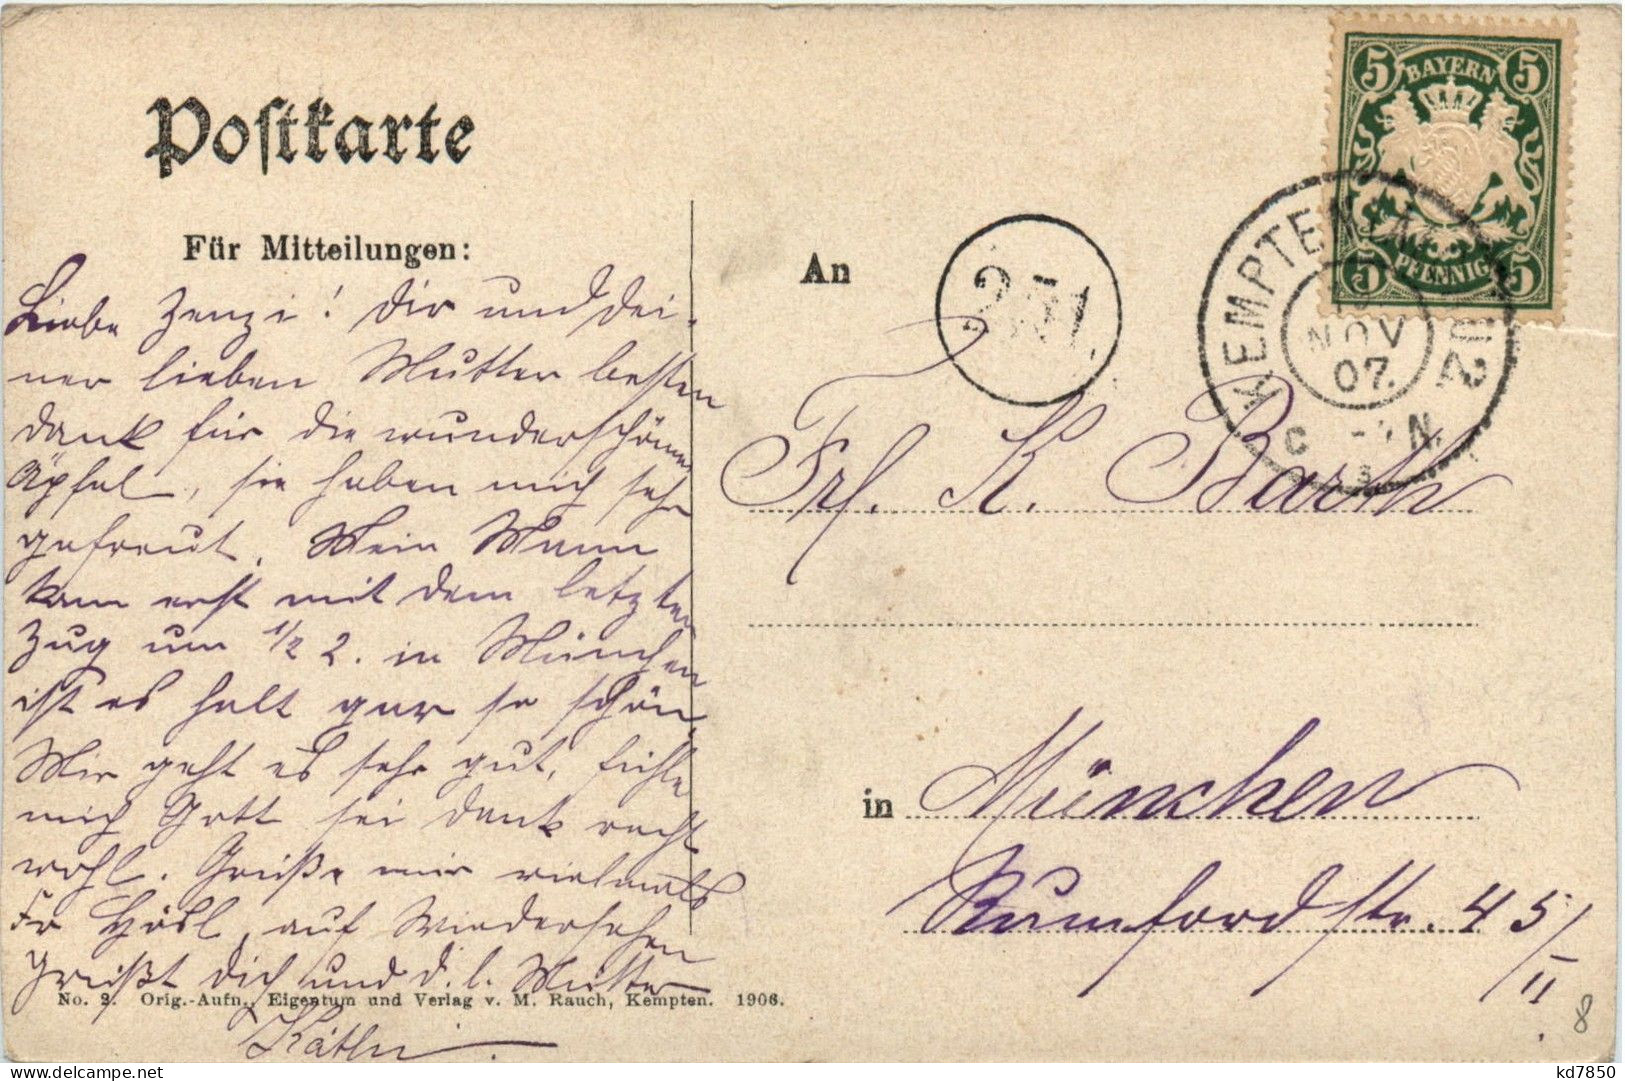 Postkarte
Für Mitteilungen:
Liebe Zenzi! Dir und dei-
ner lieben Mutter besten
Dank für die wunderschönen
Äpfel, sie haben mich sehr
gefreut. Mein Mann
kam erst mit dem letzten
Zug um 1/2 2. in München
ist es halt gar so schön.
Mir geht es sehr gut, fühle
mich Gott sei dank recht
wohl. Grüße mir vielmals
Fr Hösl, auf Wiedersehen
Grüßt Dich und d. l. Mutter
Käthi.
No. 2. Orig.-Aufn., Eigentum und Verlag v. M. Rauch, Kempten. 1906.
5 BAYERN 5
5 PFENNIG 5
KEMPTEN
NOV
07.
An
Frl. K. Barth
in München
Rumfordstr. 45/
II.
8
kd7850